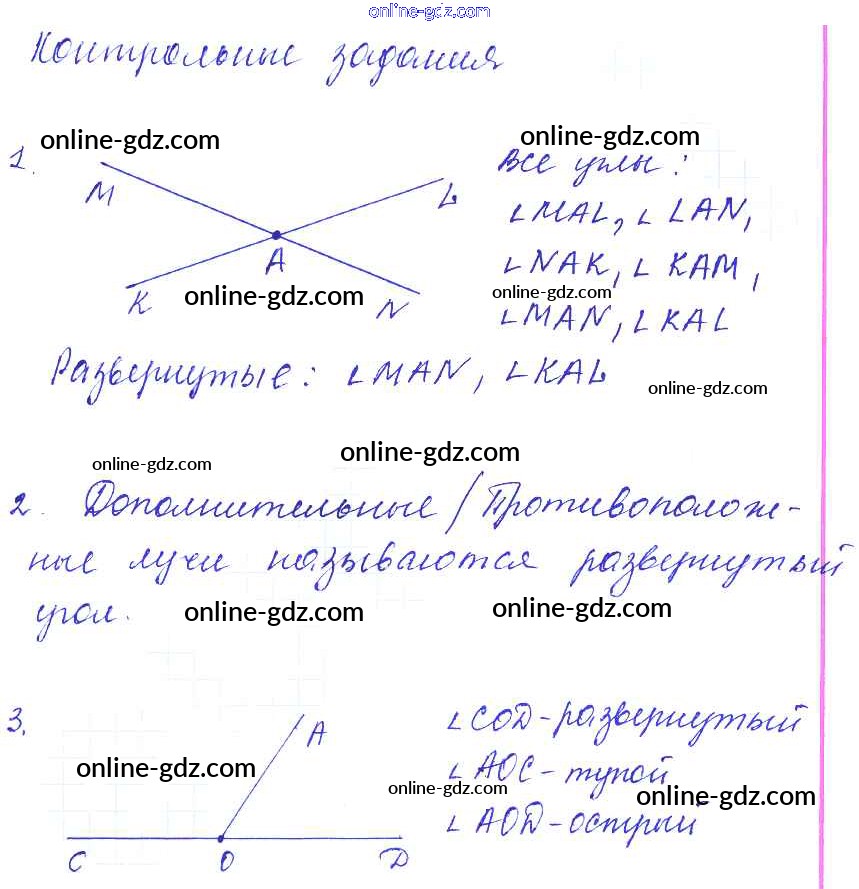 online-gdz.com
Контрольные задания
online-gdz.com
online-gdz.com
1.
M
L
A
K
N
Все углы:
∠MAL, ∠LAN,
∠NAK, ∠KAM,
∠MAN, ∠KAL
online-gdz.com
online-gdz.com
Развернутые: ∠MAN, ∠KAL
online-gdz.com
online-gdz.com
online-gdz.com
2. Дополнительные/Противополож-
ные лучи называются развернутый
угол.
online-gdz.com
online-gdz.com
3.
A
C
O
D
∠COD-развернутый
∠AOC-тупой
∠AOD-острый
online-gdz.com
online-gdz.com
online-gdz.com